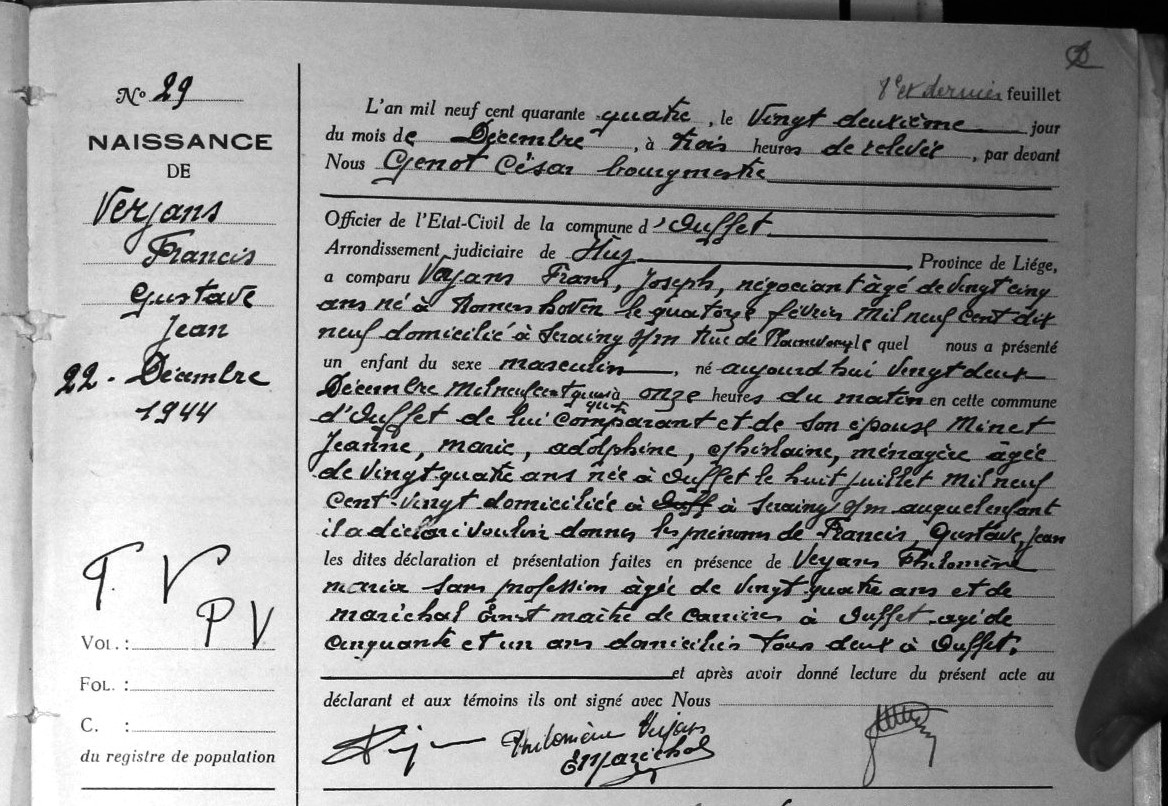 8e et dernier feuillet
No 29
NAISSANCE
DE
Verjans
Francis
Gustave
Jean
22 - Décembre
1944
VOL. :
FOL. :
C. :
du registre de population
L'an mil neuf cent quarante quatre, le Vingt deuxième jour
du mois de Décembre, à trois heures de relevée, par devant
Nous Genot César bourgmestre
Officier de l'Etat-Civil de la commune d'Ouffet
Arrondissement judiciaire de Huy Province de Liége,
a comparu Verjans Frans, Joseph, négociant âgé de vingt cinq
ans né à Romershoven le quatorze février mil neuf cent dix
neuf domicilié à Seraing s/m Rue de quel nous a présenté
un enfant du sexe masculin, né aujourd'hui vingt deux
Décembre mil neuf cent quarante quatre onze heures du matin en cette commune
d'Ouffet de lui comparant et de son épouse Minet
Jeanne, marie, adolphine, Ghislaine, ménagère âgée
de vingt quatre ans née à Ouffet le huit juillet mil neuf
cent-vingt domiciliée à Ouff à Seraing s/m auquel enfant
il a déclaré vouloir donner les prénoms de Francis, Gustave, Jean
les dites déclaration et présentation faites en présence de Verjans Philomène
maria sans profession âgée de vingt quatre ans et de
maréchal Ernest maître de carrières à Ouffet agé de
cinquante et un ans domiciliés tous deux à Ouffet.
et après avoir donné lecture du présent acte au
déclarant et aux témoins ils ont signé avec Nous
Philomène Verjans
E Maréchal